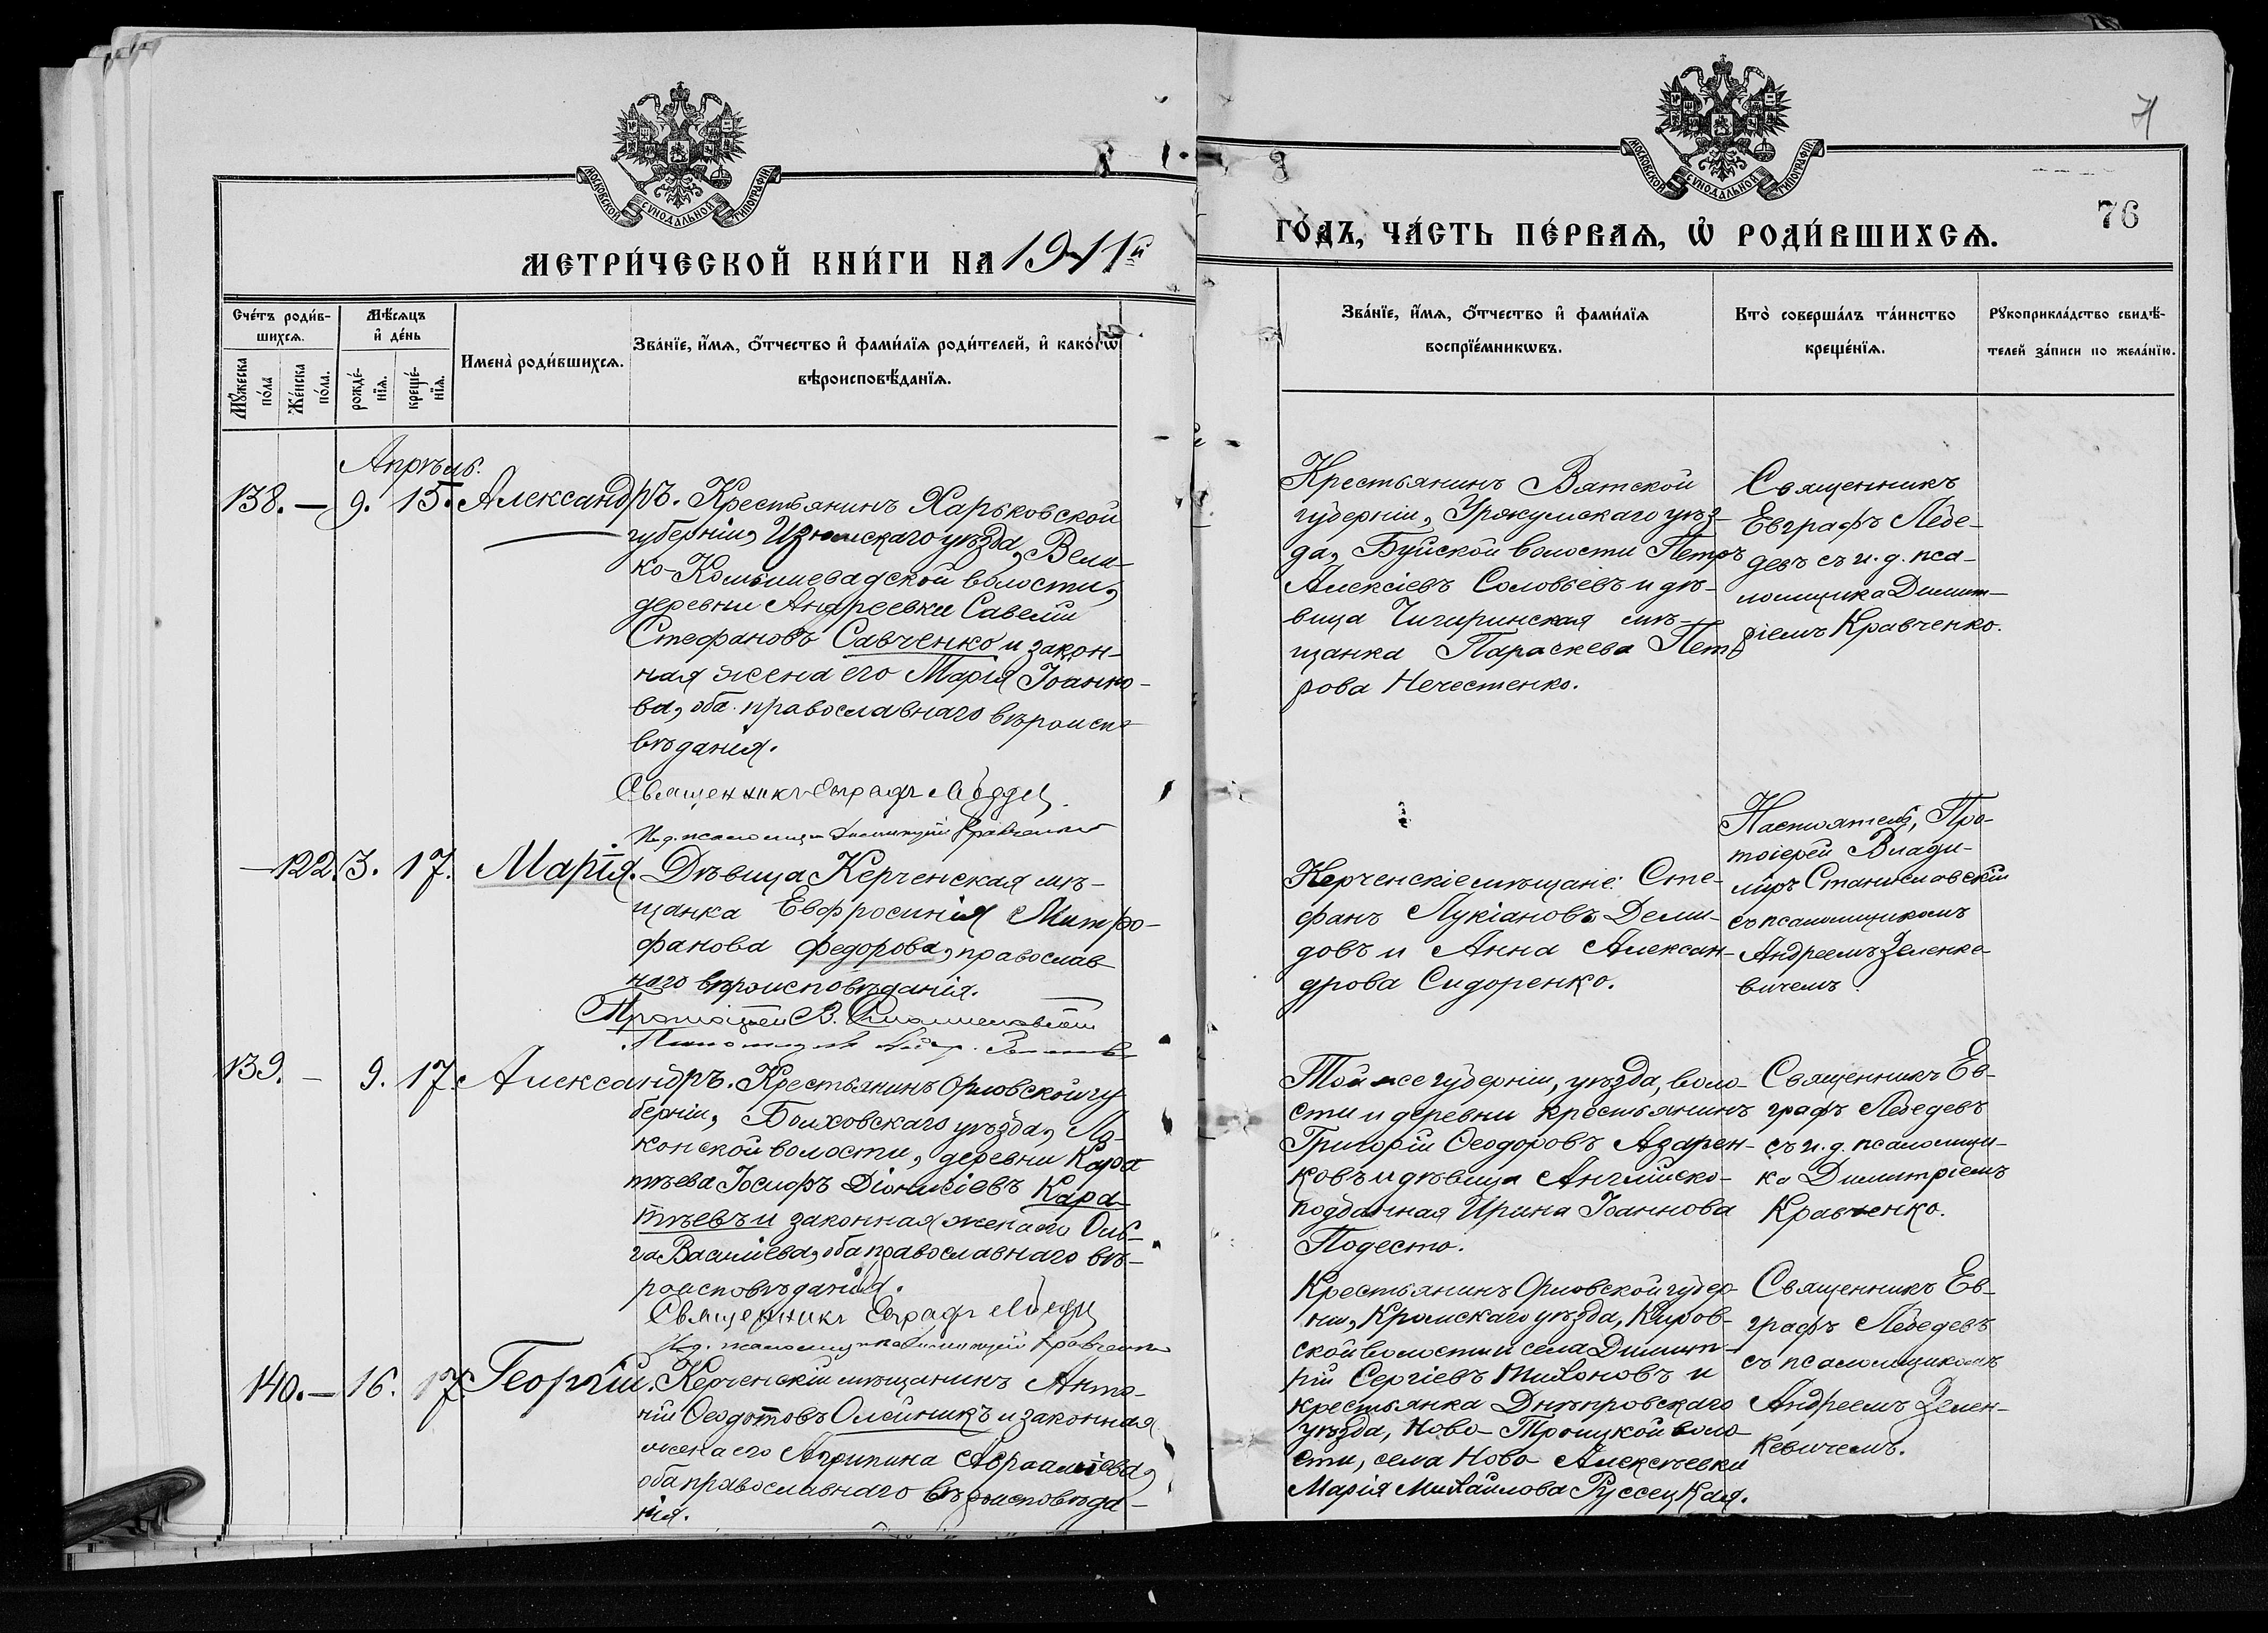 МОСКОВСКОЙ СУНОДАЛЬНОЙ ТИПОГРАФІИ
МЕТРИ́ЧЕСКОЙ КНИ́ГИ НА 1911й
Сче́тъ роди́в-
шихсѧ.
Мѣ́сѧцъ
и҆ де́нь
Мꙋ́жеска
по́ла
Же́нска
по́ла.
рожде́-
нїѧ.
креще́-
нїѧ.
Имена̀ роди́вшихсѧ.
Зва́нїе, и҆́мѧ, ѻ҆́тчество и҆ фами́лїѧ роди́телей, и҆ како́гѡ
вѣроисповѣ́данїѧ.
Апрѣль.
138. — 9. 15. Александръ. Крестьянинъ Харьковской
губерніи, Изюмскаго уѣзда, Вели-
ко-Комышевадской волости,
деревни Андреевки Савелій
Стефановъ Савченко и закон-
ная жена его Марія Іоанно-
ва, оба православнаго вѣроиспо
вѣданія.
Священникъ Евграфъ Лебедев
И.д. псаломщика Димитрій Кравченко
— 122. 3. 17. Марія. Дѣвица Керченская мѣ-
щанка Евфросинія Митро-
фанова Федорова, православ
наго вѣроисповѣданія.
Протоіерей В. Станиславскій
Псаломщикъ Андр. Зеленкев
139. — 9. 17. Александръ. Крестьянинъ Орловской гу
берніи, Болховскаго уѣзда,
конской волости, деревни Кара
тѣева Іосифъ Діонисіевъ Кара-
тѣевъ и законная жена его Оль-
га Василіева, оба православнаго вѣ-
роисповѣданія.
Священникъ Евграфъ Лебедев
И.д. псаломщика Димитрій Кравченко
140. — 16. 17. Георгій. Керченскій мѣщанинъ Анто-
ній Ѳеодотовъ Олейникъ и законная
жена его Агрипина Аврааміева,
оба православнаго вѣроисповѣда-
нія.
МОСКОВСКОЙ СУНОДАЛЬНОЙ ТИПОГРАФІИ
76
ГО́ДЪ, ЧА́СТЬ ПЕ́РВАѦ, Ѡ҆ РОДИ́ВШИХСѦ.
Зва́нїе, и҆́мѧ, ѻ҆́тчество и҆ фами́лїѧ
воспрїе́мникѡвъ.
Кто̀ соверша́лъ та́инство
креще́нїѧ.
Рꙋкоприкла́дство свидѣ́-
телей за́писи по жела́нїю.
Крестьянинъ Вятской
губерніи, Уржумскаго уѣз-
да, Буйской волости Петръ
Алексіевъ Соловьевъ и дѣ-
вица Чигиринская мѣ-
щанка Параскева Пет
рова Нечестенко.
Священникъ
Евграфъ Лебе-
девъ съ и. д. пса-
ломщика Димит-
ріемъ Кравченко.
Керченскіе мѣщане: Сте-
фанъ Лукіановъ Деми-
довъ и Анна Алексан-
дрова Сидоренко.
Настоятель, Про-
тоіерей Влади-
міръ Станиславскій
съ псаломщикомъ
Андреемъ Зеленке-
вичемъ.
Той же губерніи, уѣзда, воло-
сти и деревни крестьянинъ
Григорій Ѳеодоровъ Азарен-
ковъ и дѣвица Англійско-
подданная Ирина Іоаннова
Подесто.
Священникъ Ев-
графъ Лебедевъ
съ и. д. псаломщи-
ка Димитріемъ
Кравченко.
Крестьянинъ Орловской губер-
ніи, Кромскаго уѣзда, Киров-
ской волости и села Димит-
рій Сергіевъ Тихоновъ и
крестьянка Днѣпровскаго
уѣзда, Ново-Троицкой воло-
сти, села Ново Алексѣевки
Марія Михайлова Руссецкая.
Священникъ Ев-
графъ Лебедевъ
съ псаломщикомъ
Андреемъ Зелен-
кевичемъ.